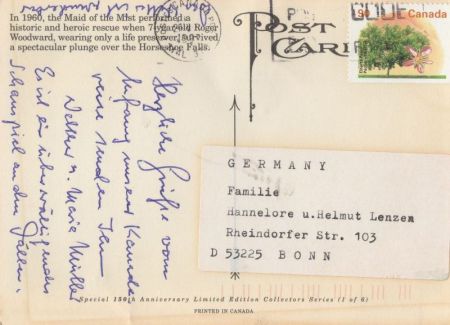 In 1960, the Maid of the Mist performed a
historic and heroic rescue when 7-year-old Roger
Woodward, wearing only a life preserver, survived
a spectacular plunge over Horseshoe Falls.
POST
CARD
CODE
CANADA
90 Canada
Herzliche Grüße vom
Anfang unserer Kanada
reise senden Ihnen
Detlev u. Marie Müller
Es ist ein überwältigendes
Schauspiel an den Fällen.
GERMANY
Familie
Hannelore u.Helmut Lenzen
Rheindorfer Str. 103
D 53225 BONN
Special 150th Anniversary Limited Edition Collectors Series (1 of 6)
PRINTED IN CANADA.